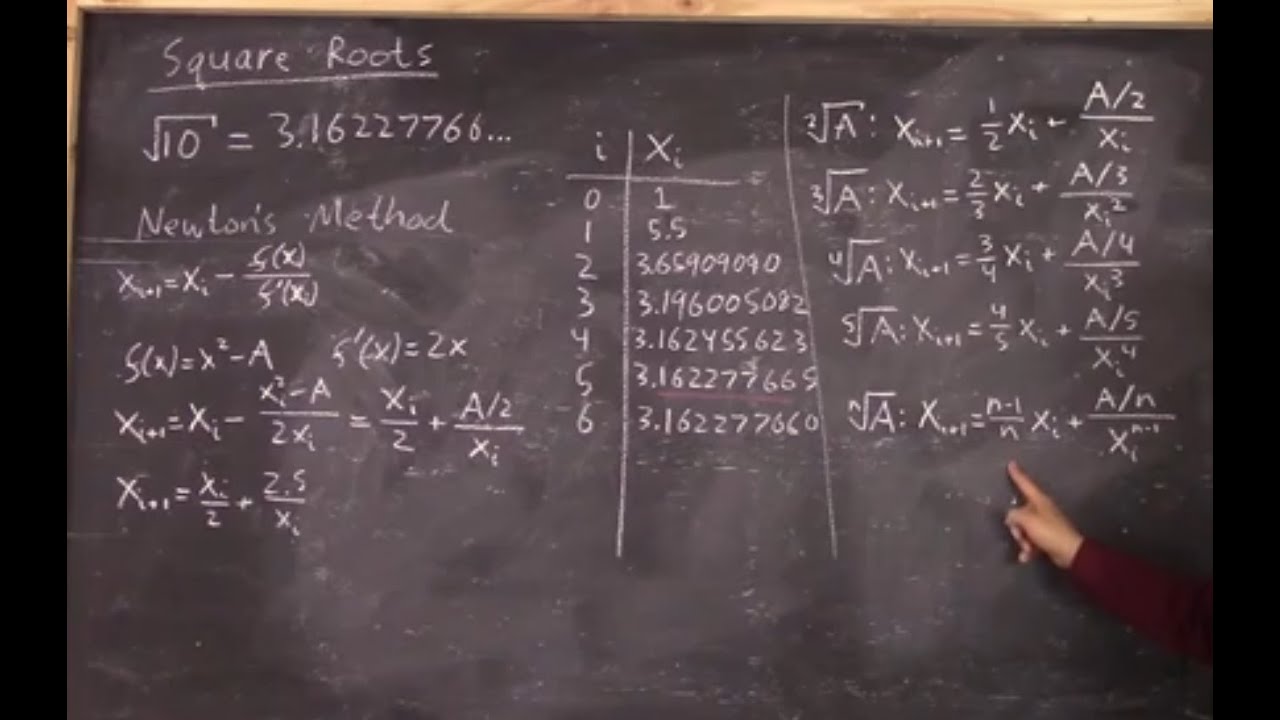 Square Roots
√10 = 3.16227766...
Newton's Method
Xi+1 = Xi - f(x)/f'(xi)
f(x) = x² - A f'(x) = 2x
Xi+1 = Xi - (xi² - A)/(2xi) = Xi/2 + (A/2)/Xi
Xi+1 = Xi/2 + 2.5/xi
i Xi
0 1
1 5.5
2 3.65909090
3 3.196005082
4 3.162455623
5 3.162277665
6 3.162277660
²√A: Xi+1 = 1/2 Xi + (A/2)/Xi
³√A: Xi+1 = 2/3 Xi + (A/3)/Xi²
⁴√A: Xi+1 = 3/4 Xi + (A/4)/Xi³
⁵√A: Xi+1 = 4/5 Xi + (A/5)/Xi⁴
ⁿ√A: Xi+1 = (n-1)/n Xi + (A/n)/Xi^(n-1)